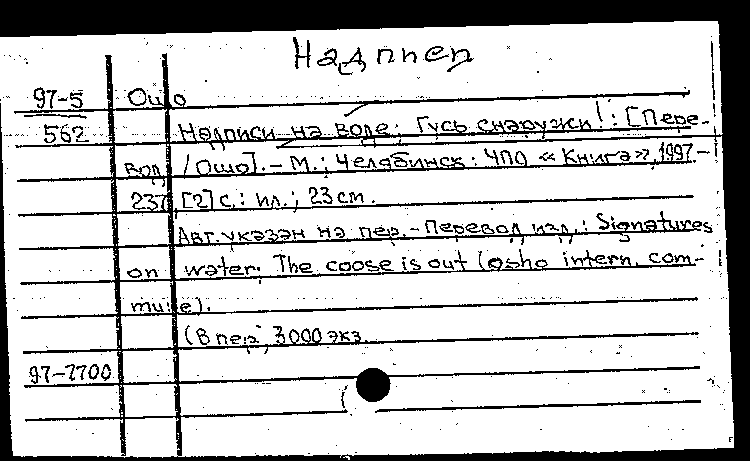 Надппер
97-5 Ошо
562 Надписи на воде; Гусь снаружи! : [Пере-
вод / Ошо]. – М.; Челябинск : ЧПО «Книга», 1997 –
237, [2] с. : ил. ; 23 см.
Авт. указан на пер. – Перевод изд.: Signatures
on water; The coose is out (osho intern. com-
mune).
(В пер), 3000 экз.
97-7700